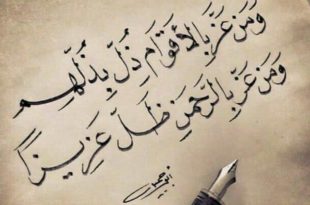 وَمَن عَزَّ بِالأَقوَامِ ذُلَّ بِذُلِّهِم
وَمَن عَزَّ بِالرَّحمَنِ ظَلَّ عَزِيزاً